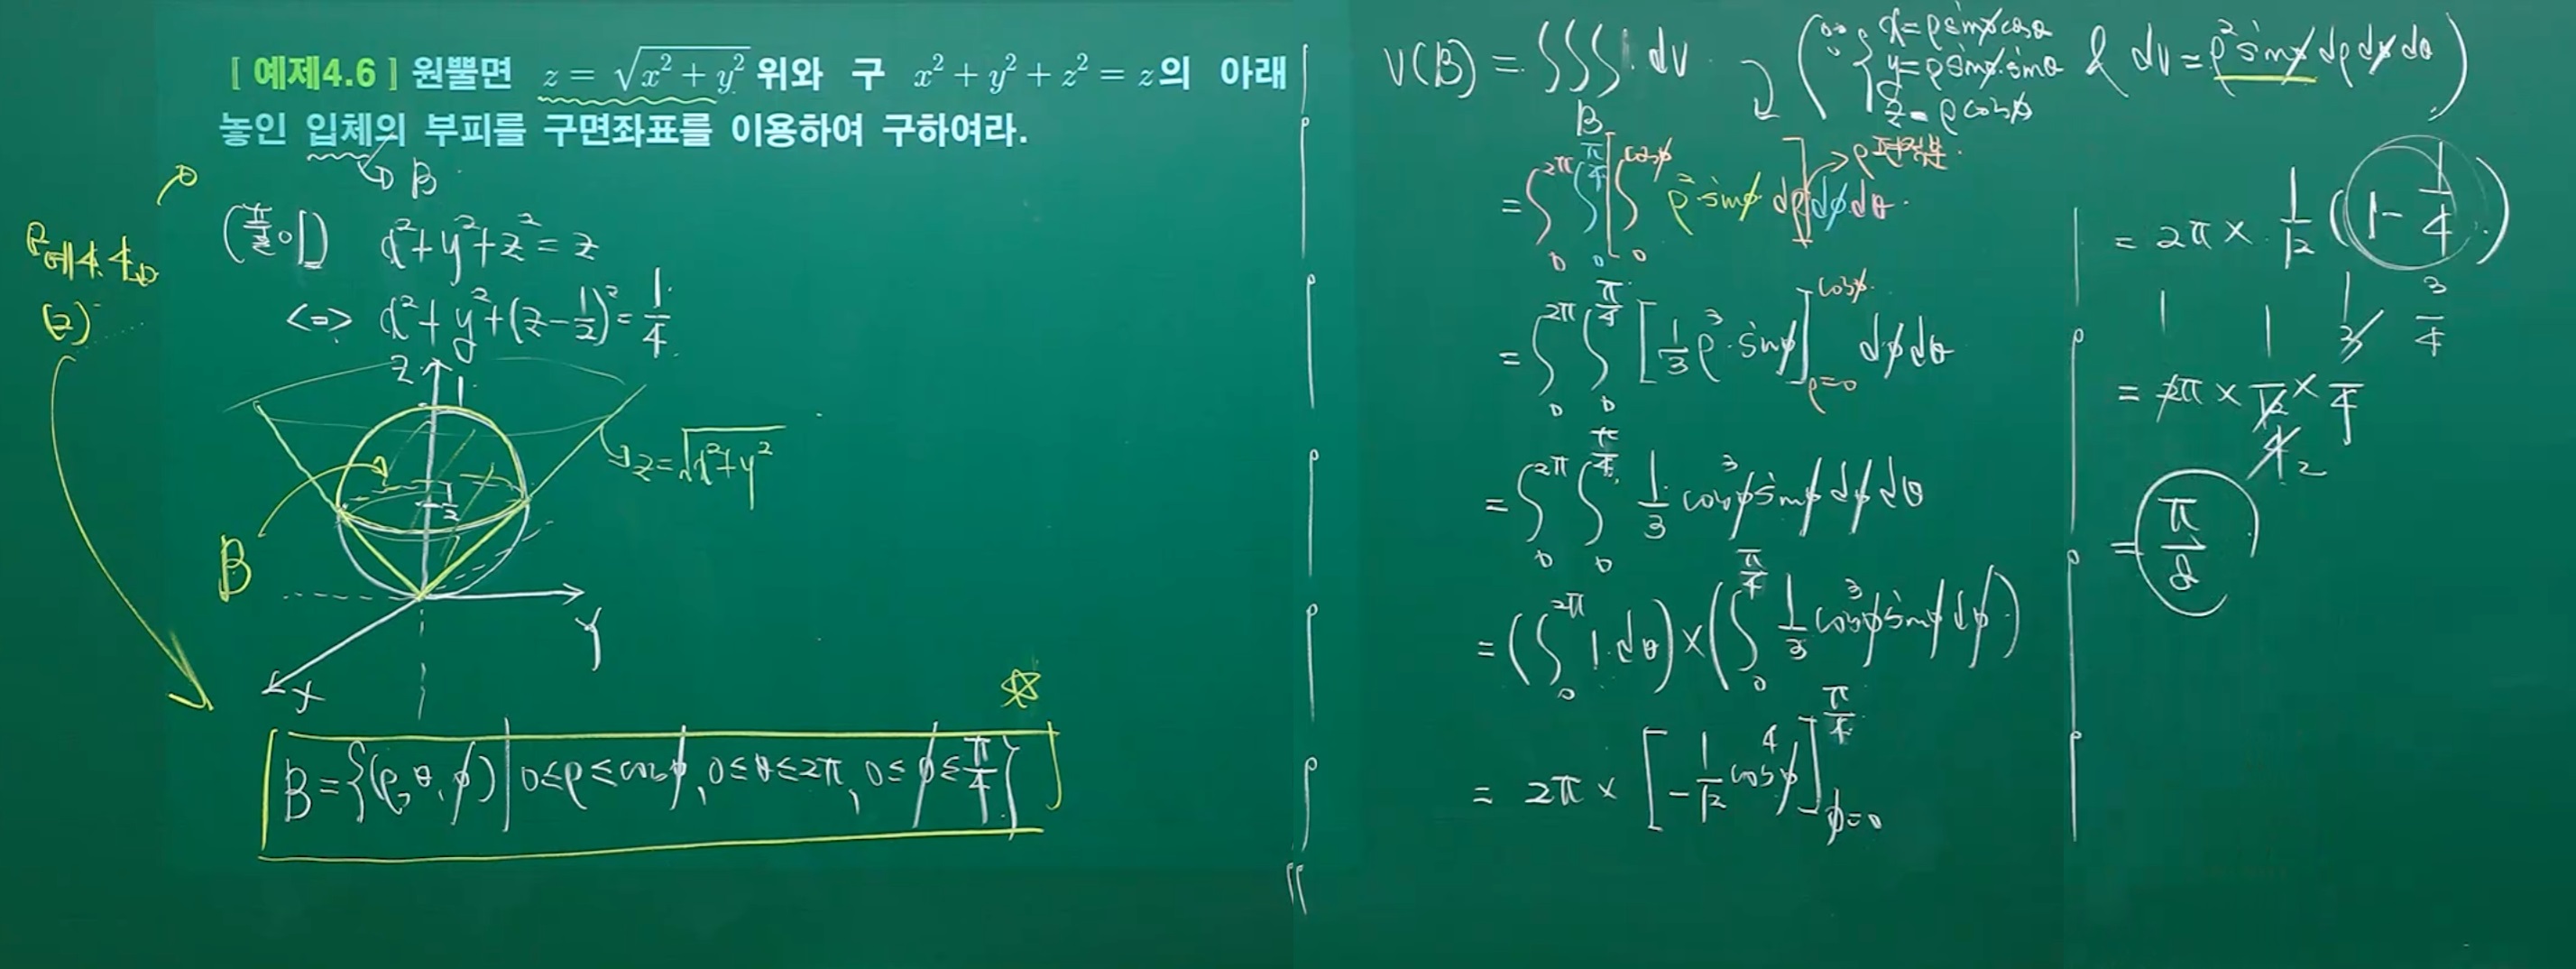 [예제4.6] 원뿔면 z = √(x² + y²) 위와 구 x² + y² + z² = z의 아래
놓인 입체의 부피를 구면좌표를 이용하여 구하여라.
B
(풀이) x²+y²+z² = z
<=> x²+y²+(z-1/2)² = 1/4
예 4.4
(2)
z
1
z=√(x²+y²)
1/2
B
Y
X
B={(ρ,θ,φ)|0≤ρ≤cosφ, 0≤θ≤2π, 0≤φ≤π/4}
V(B) = ∭_B 1 dV (∵ {x=ρsinφcosθ y=ρsinφ·sinθ z=ρcosφ & dV=ρ²sinφ dρdφdθ)
= ∫_0^{2π} ∫_0^{π/4} [∫_0^{cosφ} ρ²·sinφ dρ] dφ dθ → ρ편적분
= ∫_0^{2π} ∫_0^{π/4} [1/3 ρ³·sinφ]_{ρ=0}^{cosφ} dφdθ
= ∫_0^{2π} ∫_0^{π/4} 1/3 cos³φ sinφ dφ dθ
= (∫_0^{2π} 1·dθ) × (∫_0^{π/4} 1/3 cos³φ sinφ dφ)
= 2π × [-1/12 cos⁴φ]_{φ=0}^{π/4}
= 2π × 1/12 (1 - 1/4)
3/4
= 2π × 1/12 × 3/4
= π/8